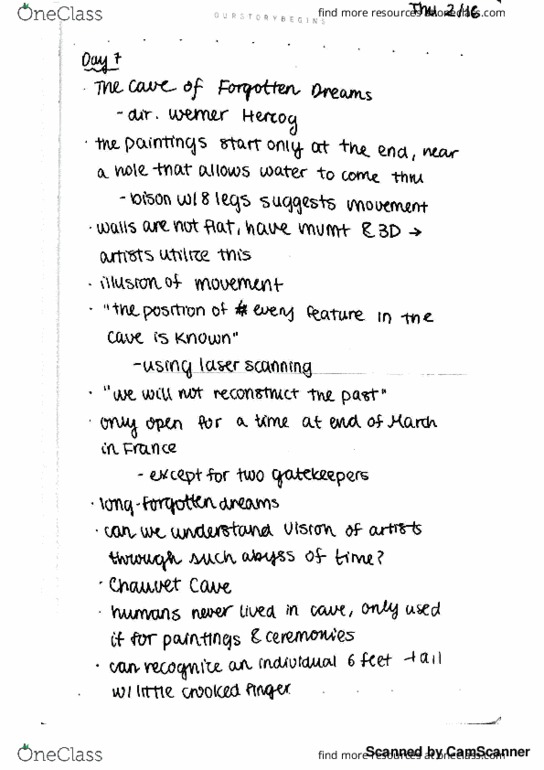 OneClass
OURSTORYBEGINS
find more resources at oneclass.com
Thu 2/16
Day 7
· The Cave of Forgotten Dreams
- dir. Werner Hercog
· the paintings start only at the end, near
a hole that allows water to come thru
- bison w/ 8 legs suggests movement
· walls are not flat, have mvmt & 3D →
artists utilize this
· illusion of movement
· "the position of every feature in the
cave is known"
- using laser scanning
· "we will not reconstruct the past"
· only open for a time at end of March
in France
- except for two gatekeepers
· long-forgotten dreams
· can we understand vision of artists
through such abyss of time?
· Chauvet Cave
· humans never lived in cave, only used
it for paintings & ceremonies
· can recognize an individual 6 feet tall
w/ little crooked finger
OneClass
find more resources at oneclass.com
Scanned by CamScanner